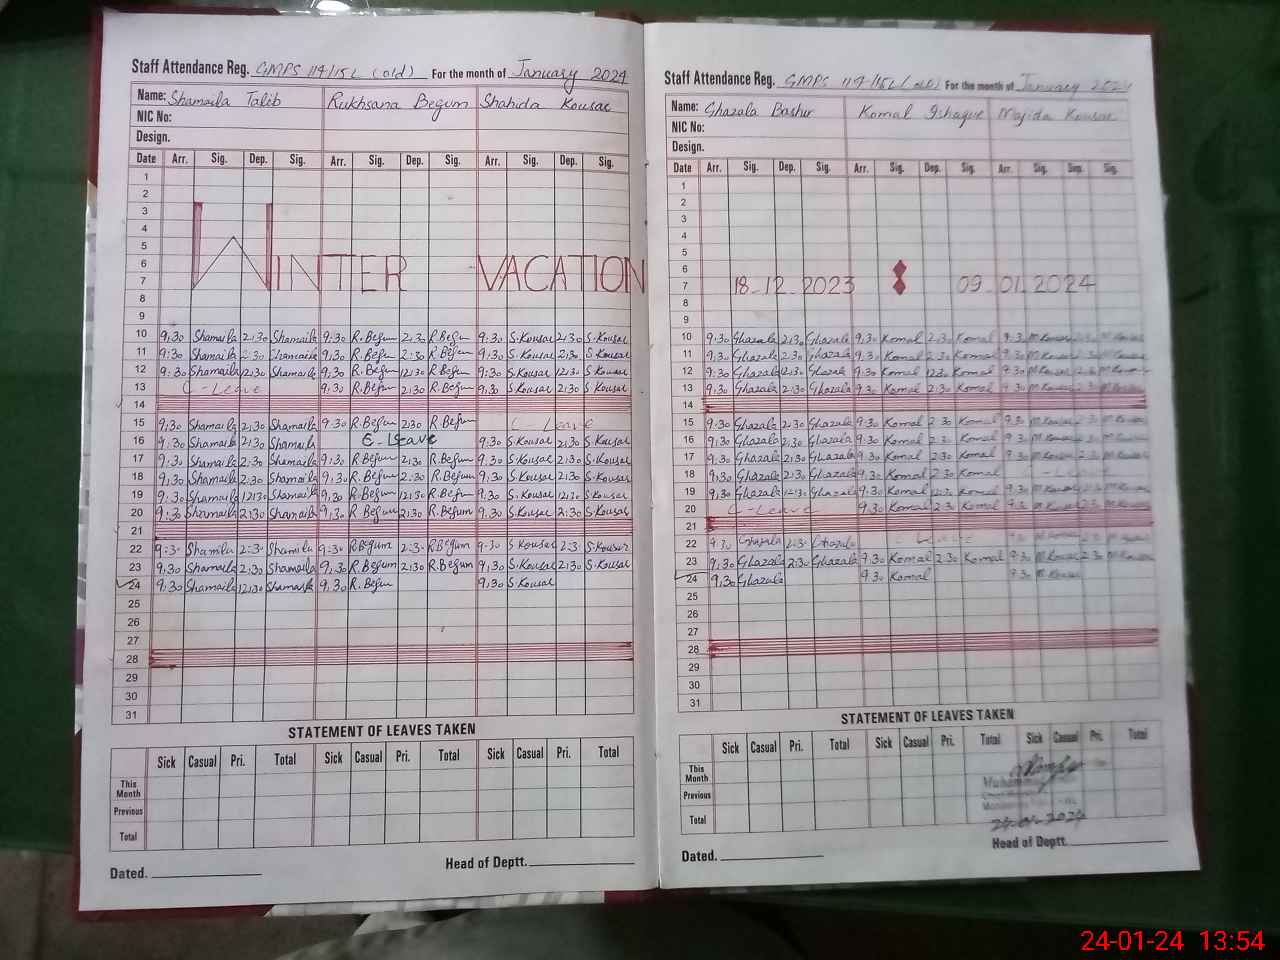 Staff Attendance Reg. GMPS 114/15L (old) For the month of January 2024
Name: Shamaila Talib Rukhsana Begum Shahida Kousar
NIC No:
Design.
Date Arr. Sig. Dep. Sig. Arr. Sig. Dep. Sig. Arr. Sig. Dep. Sig.
1
2
3
4
5
6
WINTER VACATION
7
8
9
10 9:30 Shamaila 2:30 Shamaila 9:30 R.Begum 2:30 R.Begum 9:30 S.Kousar 2:30 S.Kousar
11 9:30 Shamaila 2:30 Shamaila 9:30 R.Begum 2:30 R.Begum 9:30 S.Kousar 2:30 S.Kousar
12 9:30 Shamaila 12:30 Shamaila 9:30 R.Begum 12:30 R.Begum 9:30 S.Kousar 12:30 S.Kousar
13 C-Leave 9:30 R.Begum 2:30 R.Begum 9:30 S.Kousar 2:30 S.Kousar
14
15 9:30 Shamaila 2:30 Shamaila 9:30 R.Begum 2:30 R.Begum C-Leave
16 9:30 Shamaila 2:30 Shamaila E-Leave 9:30 S.Kousar 2:30 S.Kousar
17 9:30 Shamaila 2:30 Shamaila 9:30 R.Begum 2:30 R.Begum 9:30 S.Kousar 2:30 S.Kousar
18 9:30 Shamaila 2:30 Shamaila 9:30 R.Begum 2:30 R.Begum 9:30 S.Kousar 2:30 S.Kousar
19 9:30 Shamaila 12:30 Shamaila 9:30 R.Begum 12:30 R.Begum 9:30 S.Kousar 12:30 S.Kousar
20 9:30 Shamaila 2:30 Shamaila 9:30 R.Begum 2:30 R.Begum 9:30 S.Kousar 2:30 S.Kousar
21
22 9:3. Shamila 2:3. Shamila 9:30 RBegum 2:3. RBegum 9:30 S Kousar 2:3. S.Kousar
23 9:30 Shamaila 2:30 Shamaila 9:30 R.Begum 2:30 R.Begum 9:30 S.Kousar 2:30 S.Kousar
24 9:30 Shamaila 12:30 Shamaila 9:30 R.Begum 9:30 S.Kousar
25
26
27
28
29
30
31
STATEMENT OF LEAVES TAKEN
Sick Casual Pri. Total Sick Casual Pri. Total Sick Casual Pri. Total
This Month
Previous
Total
Dated. Head of Deptt.
Staff Attendance Reg. GMPS 114/15L (old) For the month of January 2024
Name: Ghazala Bashir Komal Ishaque Majida Kousar
NIC No:
Design.
Date Arr. Sig. Dep. Sig. Arr. Sig. Dep. Sig. Arr. Sig. Dep. Sig.
1
2
3
4
5
6
7 18-12-2023 09-01-2024
8
9
10 9:30 Ghazala 2:30 Ghazala 9:30 Komal 2:30 Komal 9:30 M.Kousar 2:30 M.Kousar
11 9:30 Ghazala 2:30 Ghazala 9:30 Komal 2:30 Komal 9:30 M.Kousar 2:30 M.Kousar
12 9:30 Ghazala 12:30 Ghazala 9:30 Komal 12:30 Komal 9:30 M.Kousar 12:30 M.Kousar
13 9:30 Ghazala 2:30 Ghazala 9:30 Komal 2:30 Komal 9:30 M.Kousar 2:30 M.Kousar
14
15 9:30 Ghazala 2:30 Ghazala 9:30 Komal 2:30 Komal 9:30 M.Kousar 2:30 M.Kousar
16 9:30 Ghazala 2:30 Ghazala 9:30 Komal 2:30 Komal 9:30 M.Kousar 2:30 M.Kousar
17 9:30 Ghazala 2:30 Ghazala 9:30 Komal 2:30 Komal 9:30 M.Kousar 2:30 M.Kousar
18 9:30 Ghazala 2:30 Ghazala 9:30 Komal 2:30 Komal C-Leave
19 9:30 Ghazala 12:30 Ghazala 9:30 Komal 12:30 Komal 9:30 M.Kousar 12:30 M.Kousar
20 C-Leave 9:30 Komal 2:30 Komal 9:30 M.Kousar 2:30 M.Kousar
21
22 9:30 Ghazala 2:30 Ghazala Leave 9:30 M.Kousar 2:30 M.Kousar
23 9:30 Ghazala 2:30 Ghazala 9:30 Komal 2:30 Komal 9:30 M.Kousar 2:30 M.Kousar
24 9:30 Ghazala 9:30 Komal 9:30 M.Kousar
25
26
27
28
29
30
31
STATEMENT OF LEAVES TAKEN
Sick Casual Pri. Total Sick Casual Pri. Total Sick Casual Pri. Total
This Month
Previous
Total
24-01-2024
Dated. Head of Deptt.
24-01-24 13:54